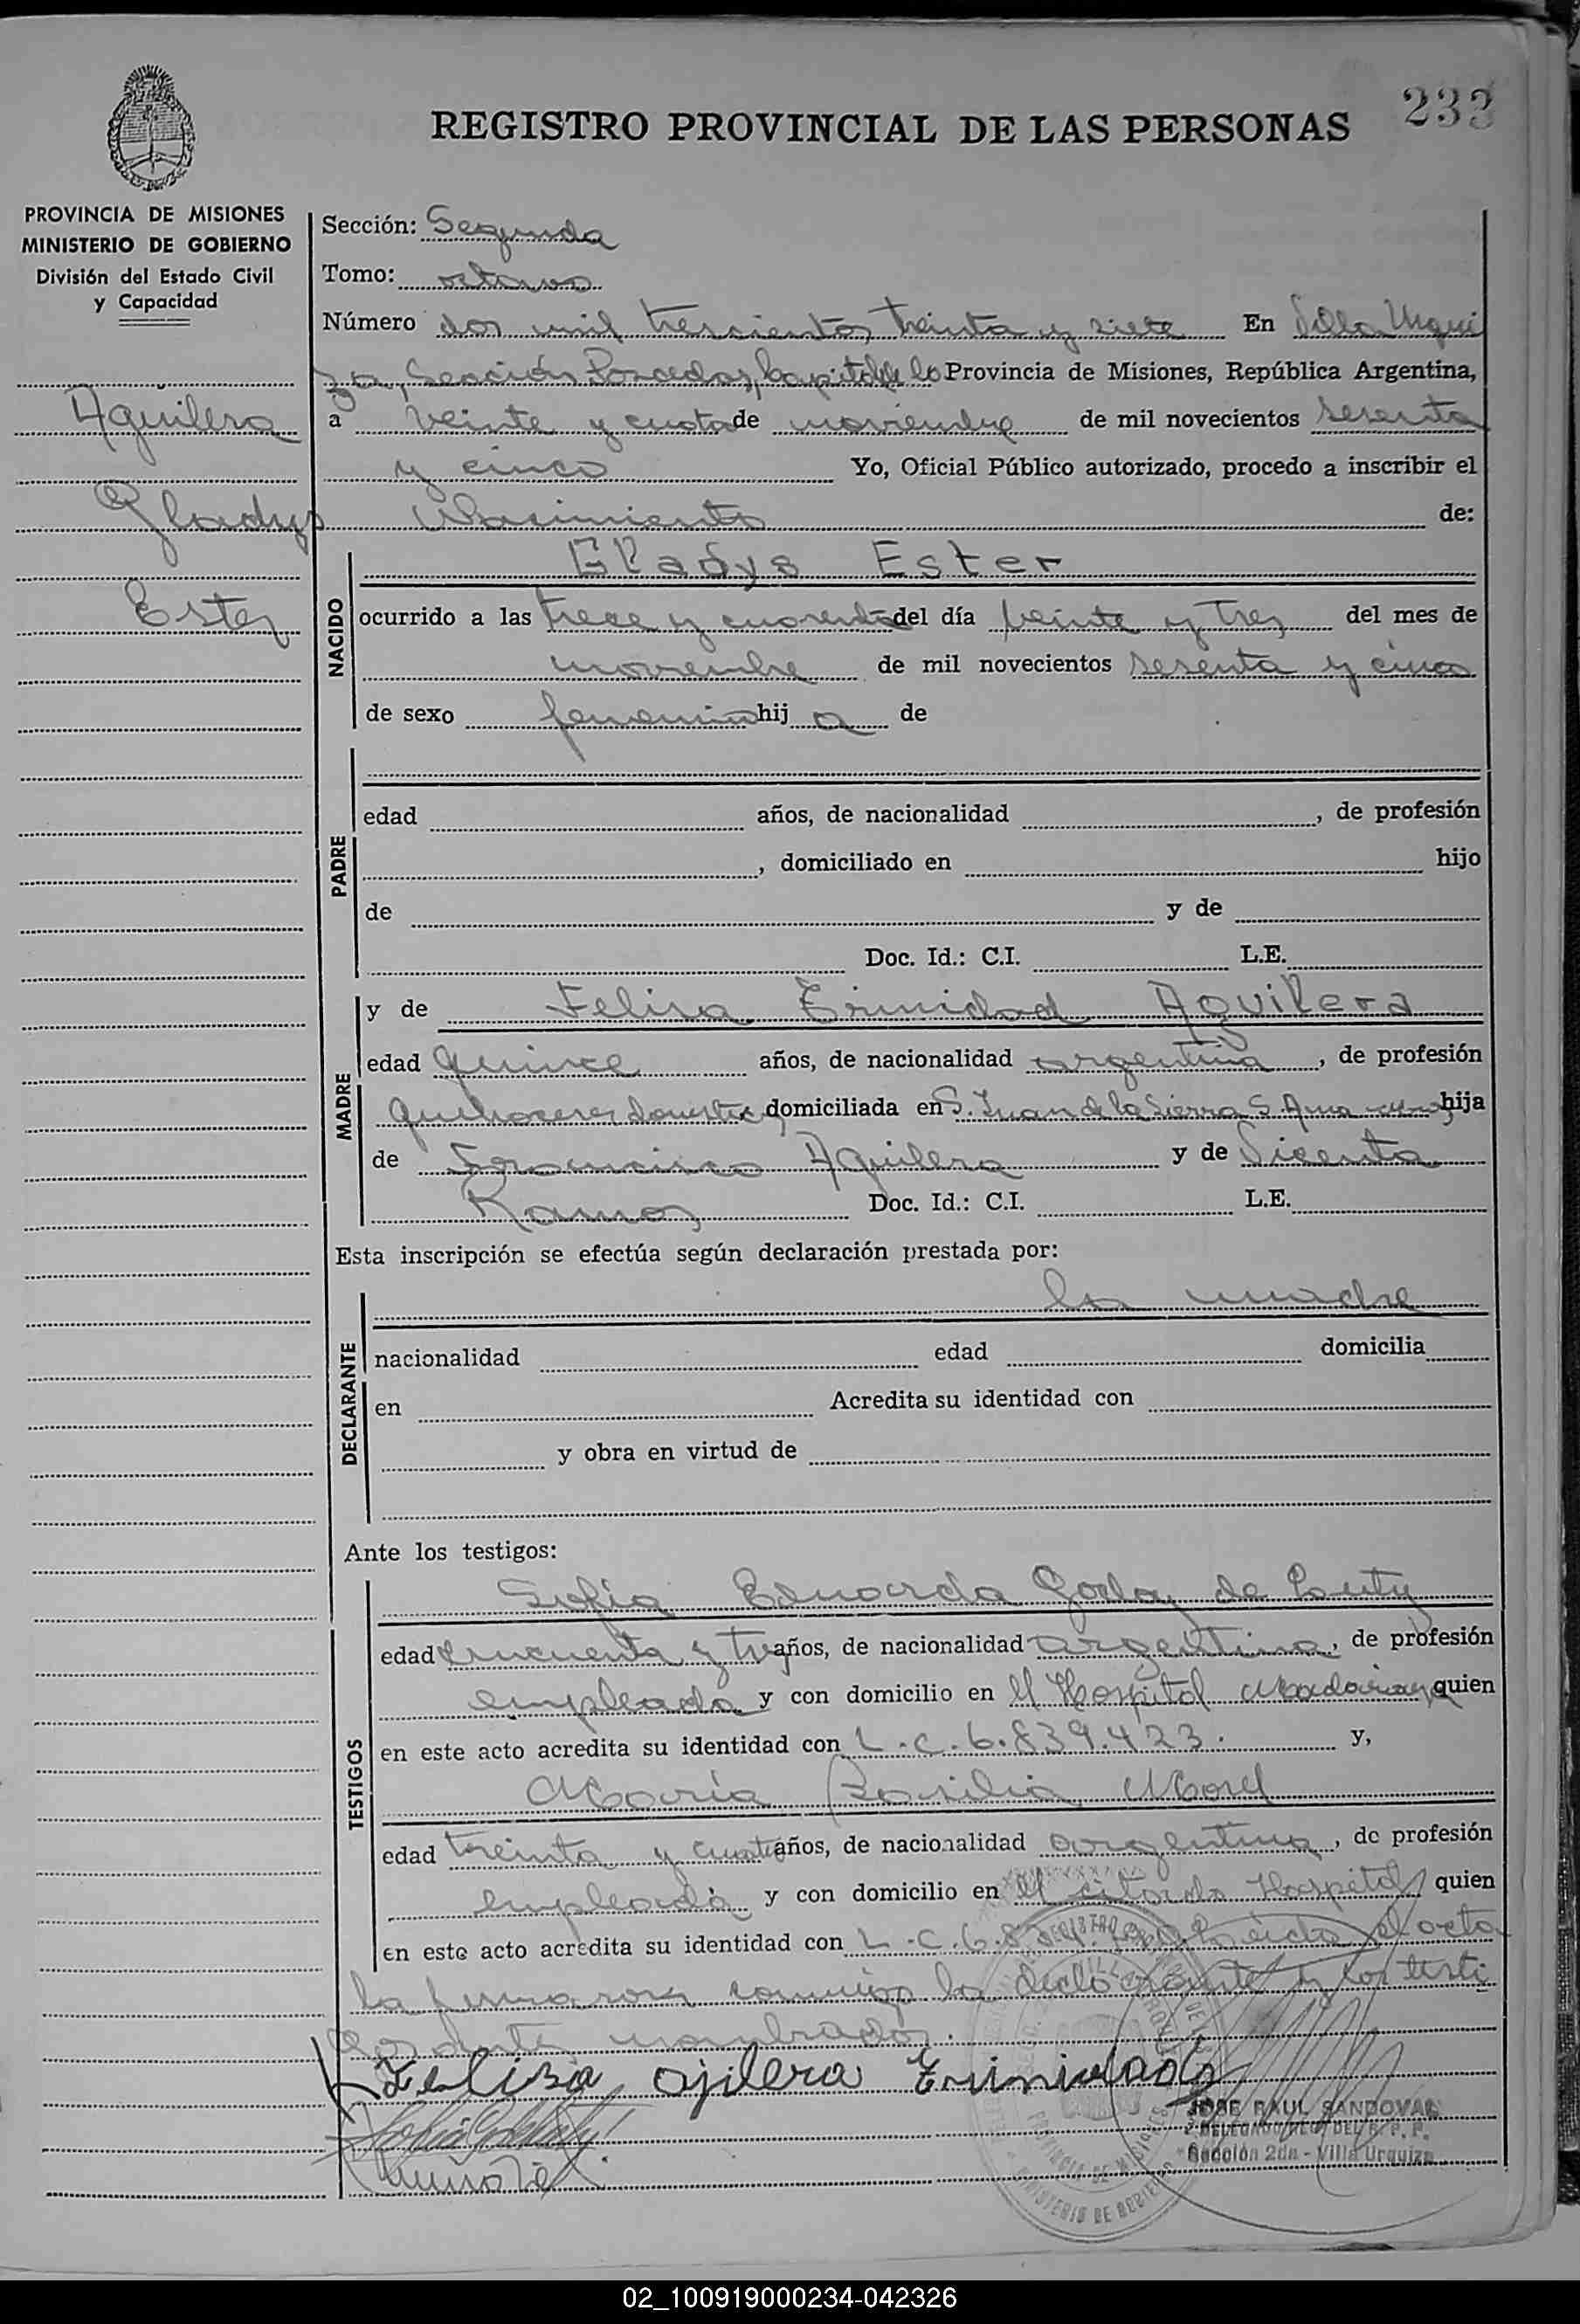 233
REGISTRO PROVINCIAL DE LAS PERSONAS
PROVINCIA DE MISIONES
MINISTERIO DE GOBIERNO
División del Estado Civil
y Capacidad
Aguilera
Gladys
Ester
Sección: Segunda
Tomo: octavo
Número dos mil trescientos treinta y siete En Villa Urqui
za, Sección Posadas, Capital de la Provincia de Misiones, República Argentina,
a veinte y cuatro de noviembre de mil novecientos sesenta
y cinco Yo, Oficial Público autorizado, procedo a inscribir el
Nacimiento de:
NACIDO
Gladys Ester
ocurrido a las trece y cuarenta del día veinte y tres del mes de
noviembre de mil novecientos sesenta y cinco
de sexo femenino hij a de
PADRE
edad años, de nacionalidad , de profesión
, domiciliado en hijo
de y de
Doc. Id.: C.I. L.E.
MADRE
y de Felisa Trinidad Aguilera
edad quince años, de nacionalidad argentina, de profesión
quehaceres domésticos, domiciliada en S. Juan de la Sierra S. Ana hija
de Francisco Aguilera y de Vicenta
Ramos Doc. Id.: C.I. L.E.
Esta inscripción se efectúa según declaración prestada por:
DECLARANTE
la madre
nacionalidad edad domicilia
en Acredita su identidad con
y obra en virtud de
Ante los testigos:
TESTIGOS
Sofia Eduarda Godoy de
edad cincuenta y tres años, de nacionalidad argentina, de profesión
empleada y con domicilio en el Hospital Madariaga quien
en este acto acredita su identidad con L.C. 6.839.423. y,
María Basilia Morel
edad treinta y cuatro años, de nacionalidad argentina, de profesión
empleada y con domicilio en el citado Hospital quien
en este acto acredita su identidad con L.C. Leída el acta
la firmaron conmigo la declarante y los testi
gos ante nombrados.
Felisa ojilera Trinida
JOSE RAUL SANDOVAL
DELEGADO DEL R. P. P.
Sección 2da - Villa Urquiza
PROVINCIA DE MISIONES
MINISTERIO DE GOBIERNO
02_100919000234-042326